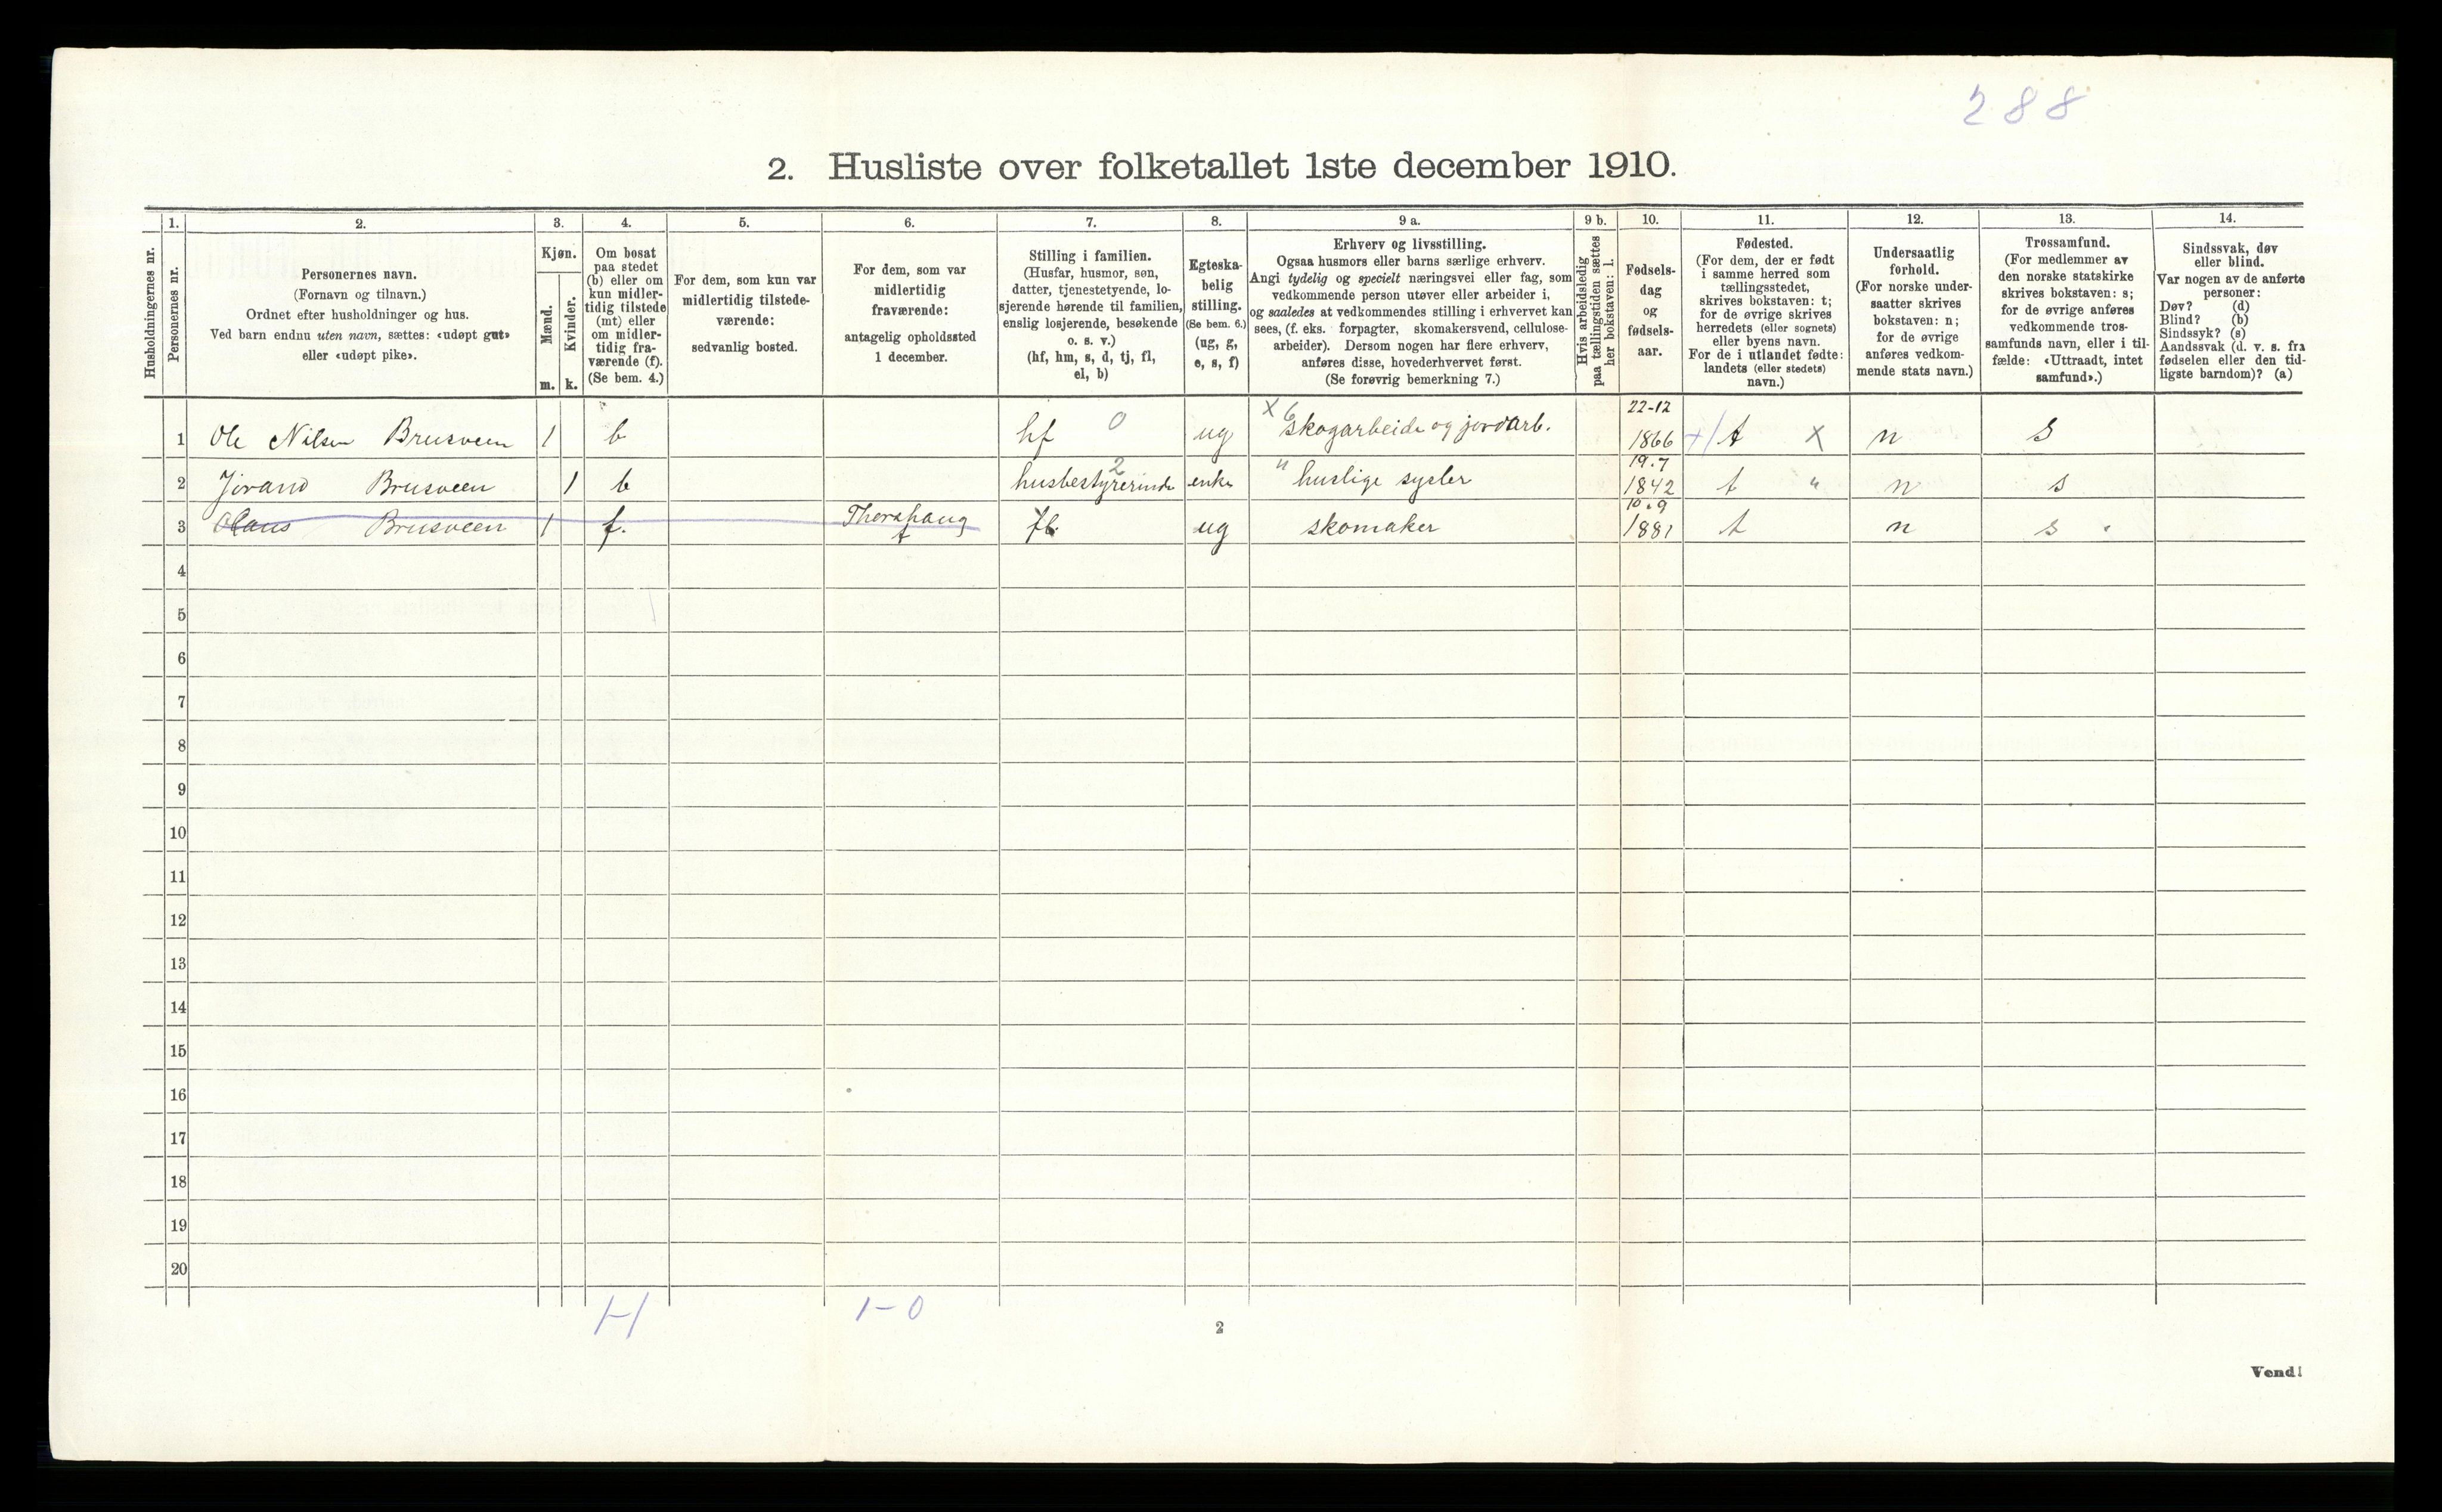 288
2. Husliste over folketallet 1ste december 1910.
Husholdningernes nr.
1.
Personernes nr.
2.
Personernes navn.
(Fornavn og tilnavn.)
Ordnet efter husholdninger og hus.
Ved barn endnu uten navn, sættes: «udøpt gut»
eller «udøpt pike».
3.
Kjøn.
Mænd.
m.
Kvinder.
k.
4.
Om bosat
paa stedet
(b) eller om
kun midler-
tidig tilstede
(mt) eller
om midler-
tidig fra-
værende (f).
(Se bem. 4.)
5.
For dem, som kun var
midlertidig tilstede-
værende:
sedvanlig bosted.
6.
For dem, som var
midlertidig
fraværende:
antagelig opholdssted
1 december.
7.
Stilling i familien.
(Husfar, husmor, søn,
datter, tjenestetyende, lo-
sjerende hørende til familien,
enslig losjerende, besøkende
o. s. v.)
(hf, hm, s, d, tj, fl,
el, b)
8.
Egteska-
belig
stilling.
(Se bem. 6.)
(ug, g,
e, s, f)
9 a.
Erhverv og livsstilling.
Ogsaa husmors eller barns særlige erhverv.
Angi tydelig og specielt næringsvei eller fag, som
vedkommende person utøver eller arbeider i,
og saaledes at vedkommendes stilling i erhvervet kan
sees, (f. eks. forpagter, skomakersvend, cellulose-
arbeider). Dersom nogen har flere erhverv,
anføres disse, hovederhvervet først.
(Se forøvrig bemerkning 7.)
9 b.
Hvis arbeidsledig
paa tællingstiden sættes
her bokstaven: l.
10.
Fødsels-
dag
og
fødsels-
aar.
11.
Fødested.
(For dem, der er født
i samme herred som
tællingsstedet,
skrives bokstaven: t;
for de øvrige skrives
herredets (eller sognets)
eller byens navn.
For de i utlandet fødte:
landets (eller stedets)
navn.)
12.
Undersaatlig
forhold.
(For norske under-
saatter skrives
bokstaven: n;
for de øvrige
anføres vedkom-
mende stats navn.)
13.
Trossamfund.
(For medlemmer av
den norske statskirke
skrives bokstaven: s;
for de øvrige anføres
vedkommende tros-
samfunds navn, eller i til-
fælde: «Uttraadt, intet
samfund».)
14.
Sindssvak, døv
eller blind.
Var nogen av de anførte
personer:
Døv? (d)
Blind? (b)
Sindssyk? (s)
Aandssvak (d. v. s. fra
fødselen eller den tid-
ligste barndom)? (a)
1 Ole Nilsen Brusveen 1 b hf 0 ug X 6 skogarbeide og jordarb. 22-12 1866 t X n s
2 Jørand Brusveen 1 b husbestyrerinde 2 enke " huslige sysler 19.7 1842 t " n s
3 Olaus Brusveen 1 f. Thorshaug t fl. ug skomaker 10.9 1881 t n s
4
5
6
7
8
9
10
11
12
13
14
15
16
17
18
19
20
1-1
1-0
2
Vend!